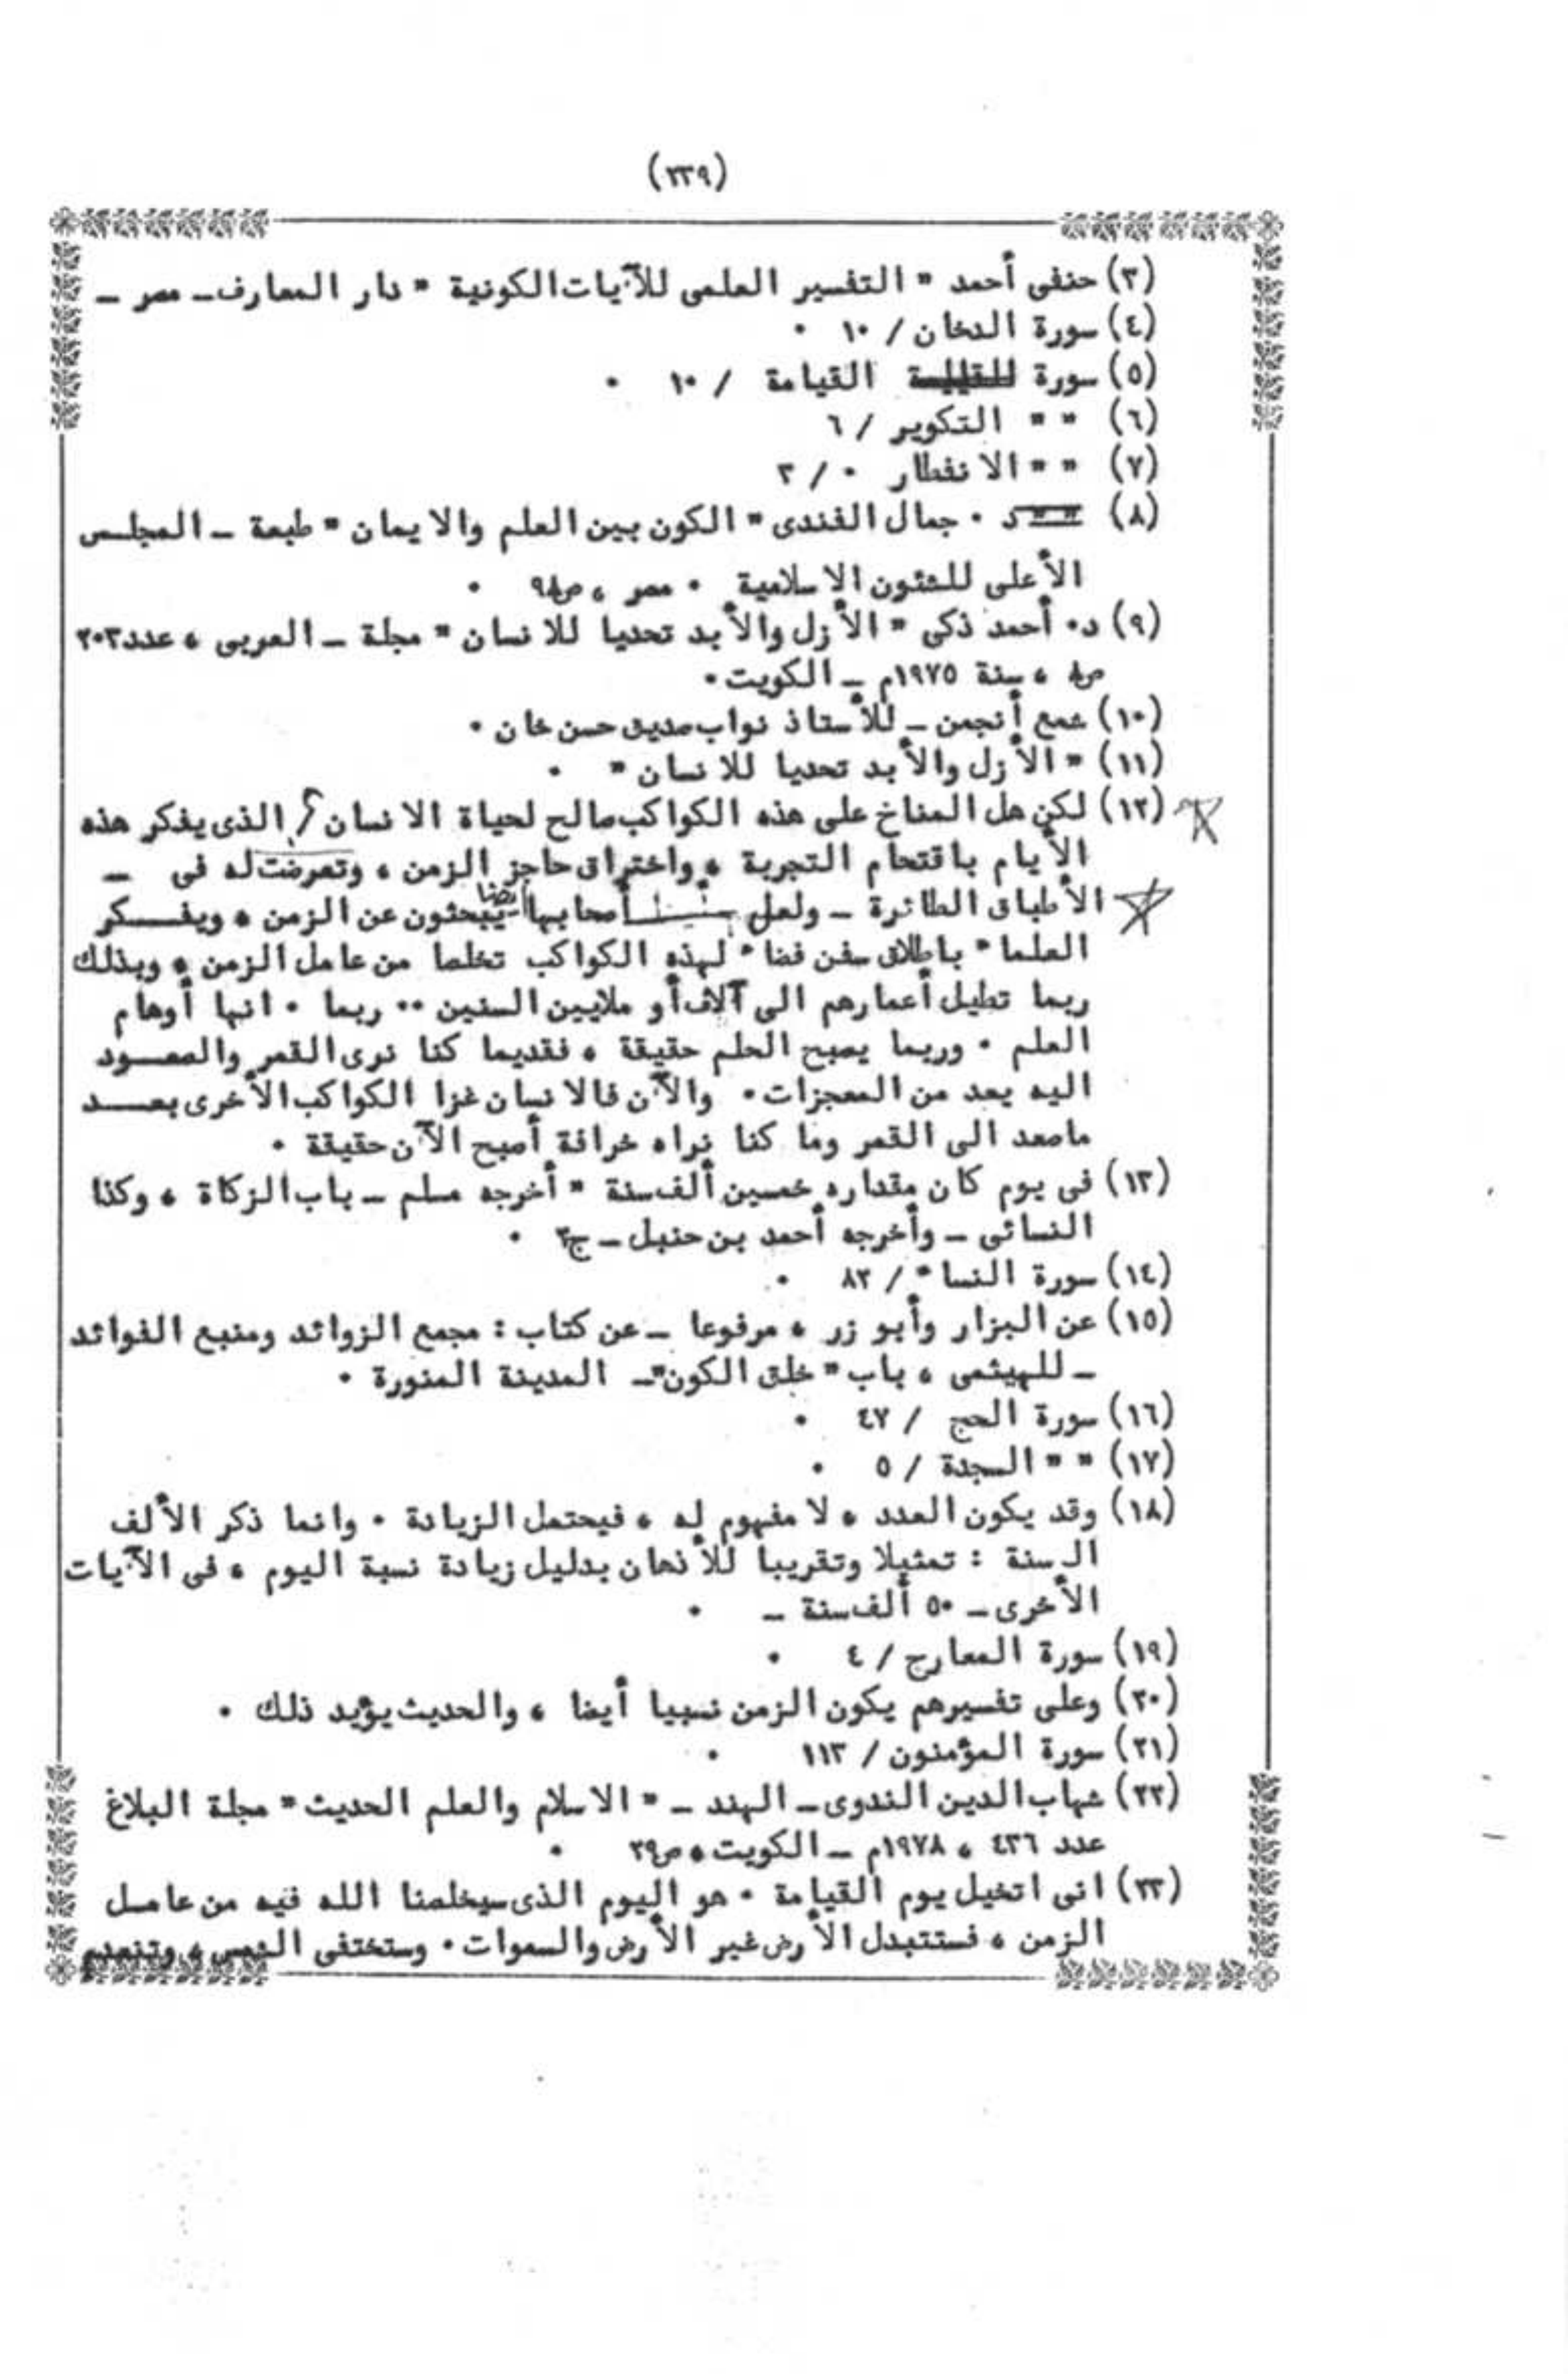 (٢٣٩)
(٣) حنفى أحمد " التفسير العلمى للآيات الكونية " دار المعارف ـ مصر ـ
(٤) سورة الدخان / ١٠ ٠
(٥) سورة القيامة / ١٠ ٠
(٦) " " التكوير / ٦
(٧) " " الانفطار ٠ / ٢
(٨) د ٠ جمال الفندى " الكون بين العلم والايمان " طبعة ـ المجلس
الأعلى للشئون الاسلامية ٠ مصر ، ٠
(٩) د٠ أحمد ذكى " الأزل والأبد تحديا للانسان " مجلة ـ العربى ، عدد٢٠٣
، سنة ١٩٧٥م ـ الكويت٠
(١٠) شمع أنجمن ـ للأستاذ نواب صديق حسن خان ٠
(١١) " الأزل والأبد تحديا للانسان " ٠
(١٢) لكن هل المناخ على هذه الكواكب صالح لحياة الانسان ؟ الذى يفكر هذه
الأيام باقتحام التجربة ، واختراق حاجز الزمن ، وتعرضت له فى ـ
الأطباق الطائرة ـ ولعل أصحابها أيضا يبحثون عن الزمن ، ويفكر
العلماء باطلاق سفن فضاء لهذه الكواكب تخلصا من عامل الزمن ، وبذلك
ربما تطيل أعمارهم الى آلاف أو ملايين السنين ٠٠ ربما ٠ انها أوهام
العلم ٠ وربما يصبح الحلم حقيقة ، فقديما كنا نرى القمر والصعود
اليه يعد من المعجزات٠ والآن فالانسان غزا الكواكب الأخرى بعد
ماصعد الى القمر وما كنا نراه خرافة أصبح الآن حقيقة ٠
(١٣) فى يوم كان مقداره خمسين ألف سنة " أخرجه مسلم ـ باب الزكاة ، وكذا
النسائى ـ وأخرجه أحمد بن حنبل ـ ج٢ ٠
(١٤) سورة النساء / ٨٢ ٠
(١٥) عن البزار وأبو زر ، مرفوعا ـ عن كتاب : مجمع الزوائد ومنبع الفوائد
ـ للهيثمى ، باب " خلق الكون"ـ المدينة المنورة ٠
(١٦) سورة الحج / ٤٧ ٠
(١٧) " " السجدة / ٥ ٠
(١٨) وقد يكون العدد ، لا مفهوم له ، فيحتمل الزيادة ٠ وانما ذكر الألف
السنة : تمثيلا وتقريبا للأذهان بدليل زيادة نسبة اليوم ، فى الآيات
الأخرى ـ ٥٠ ألف سنة ـ ٠
(١٩) سورة المعارج / ٤ ٠
(٢٠) وعلى تفسيرهم يكون الزمن نسبيا أيضا ، والحديث يؤيد ذلك ٠
(٢١) سورة المؤمنون / ١١٣ ٠
(٢٢) شهاب الدين الندوى ـ الهند ـ " الاسلام والعلم الحديث " مجلة البلاغ
عدد ٤٣٦ ، ١٩٧٨م ـ الكويت ، ص٣٩ ٠
(٢٣) انى اتخيل يوم القيامة ٠ هو اليوم الذى سيخلصنا الله فيه من عامل
الزمن ، فستتبدل الأرض غير الأرض والسموات ٠ وستختفى الشمس ، وتنعدم